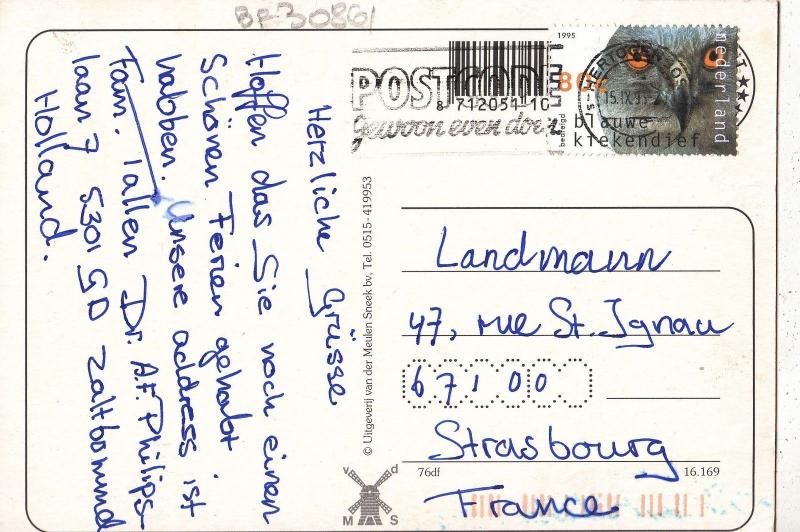 BF30861
Herzliche Grüsse
Hoffen das Sie noch einen
Schönen Ferien gehabt
habben. Unsere address ist
Fam. Tallen Dr. A.F. Philips
laan 7 5301 GD Zaltbommel
Holland.
© Uitgeverij van der Meulen Sneek bv, Tel. 0515-419953
POSTCODE
gewoon even doen
8 712054 10
1995
80c
nederland
bedreigd
blauwe
kiekendief
Landmann
47, rue St. Ignau
67100
Strasbourg
France
76df
16.169
v d
M S